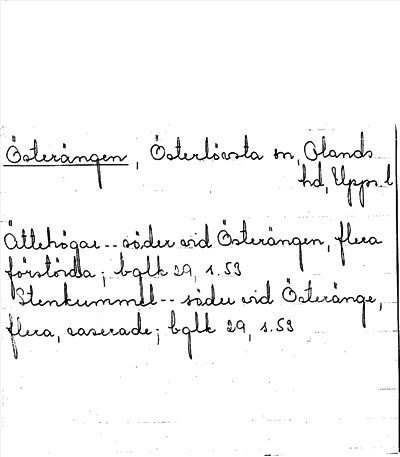 Österängen, Österlövsta sn, Olands
hd, Upps. l
Ättehögar -- söder vid Österängen, flera
förstörda; bglk 29, s. 53
Stenkummel -- söder vid Österänge,
flera, raserade; bglk 29, s. 53